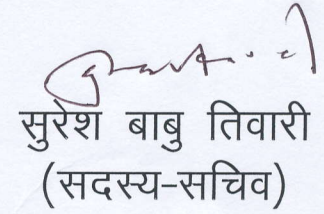 सुरेश बाबु तिवारी
(सदस्य-सचिव)